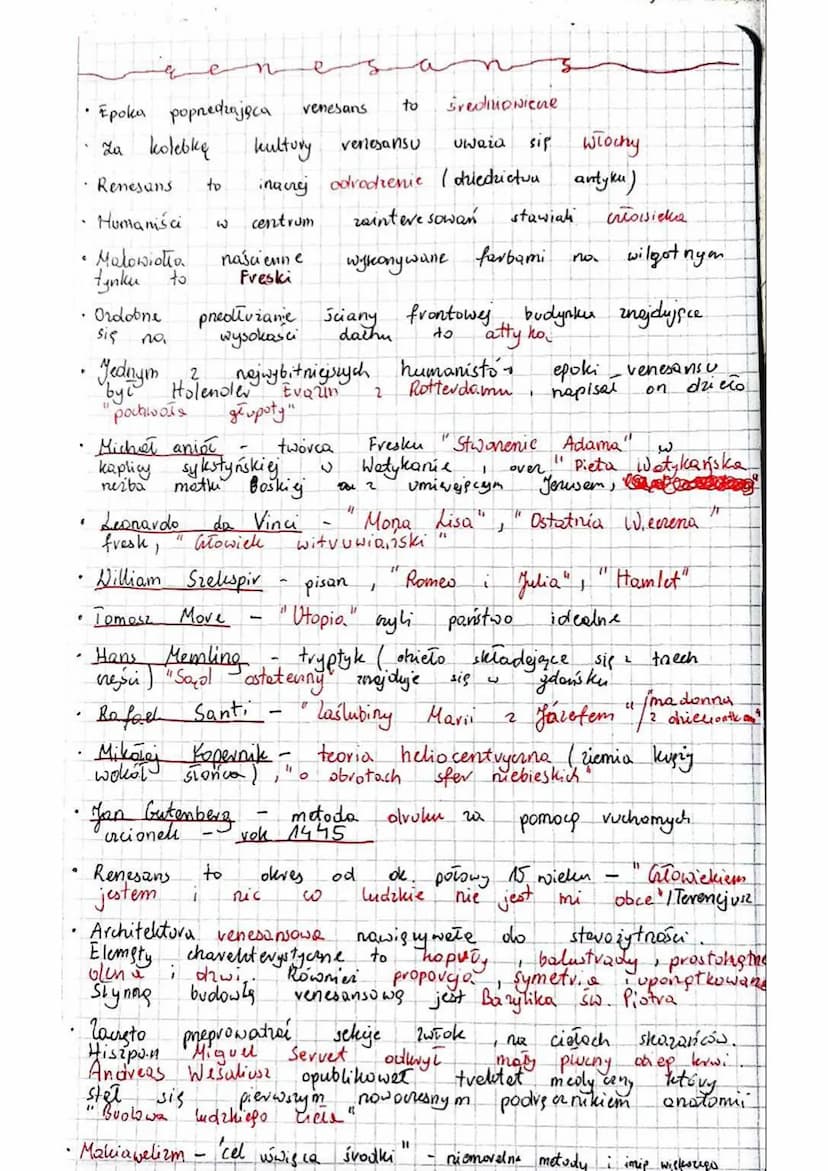 renesans
· Epoka poprzedzająca renesans to średniowiecze
· Za kolebkę kultury renesansu uważa się Włochy
· Renesans to inaczej odrodzenie (dziedzictwa antyku)
· Humaniści w centrum zainteresowań stawiali człowieka
· Malowidła naścienne wykonywane farbami na wilgotnym
tynku to Freski
· Ozdobne przedłużanie ściany frontowej budynku znajdujące
się na wysokości dachu to attyka
· Jednym z najwybitniejszych humanistów epoki renesansu
był Holender Erazm z Rotterdamu, napisał on dzieło
"pochwała głupoty"
· Michał anioł - twórca Fresku "Stworzenie Adama" w
kaplicy sykstyńskiej w Watykanie, oraz "Pieta Watykańska
rzeźba matki Boskiej z umierającym Jezusem,
· Leonardo da Vinci - "Mona Lisa", "Ostatnia Wieczerza"
fresk, "Człowiek witruwiański"
· William Szekspir - pisarz, "Romeo i Julia", "Hamlet"
· Tomasz More - "Utopia" czyli państwo idealne
· Hans Memling - tryptyk (dzieło składające się z trzech
części) "Sąd ostateczny" znajduje się w gdańsku
· Rafael Santi - "Zaślubiny Marii z Józefem" / "madonna
z dzieciątkiem"
· Mikołaj Kopernik - teoria heliocentryczna (ziemia krąży
wokół słońca), "o obrotach sfer niebieskich"
· Jan Gutenberg - metoda druku za pomocą ruchomych
czcionek - rok 1445
· Renesans to okres od ok. połowy 15 wieku - "Człowiekiem
jestem i nic co ludzkie nie jest mi obce" /Terencjusz
· Architektura renesansowa nawiązywała do starożytności.
Elemęty charekterystyczne to kopuły, balustrady, prostokątne
okna i drzwi. Również proporcja, symetria i uporządkowanie
Słynną budowlą renesansową jest Bazylika św. Piotra
· Zaczęto przeprowadzać sekcje zwłok, na ciałach skazańców.
Hiszpan Miguel Servet odkrył mały płucny obieg krwi.
Andreas Wesaliusz opublikował traktat medyczny który
stał się pierwszym nowoczesnym podręcznikiem anatomii
"Budowa ludzkiego ciała"
· Makiawelizm - "cel uświęca środki" - niemoralne metody w imię większego